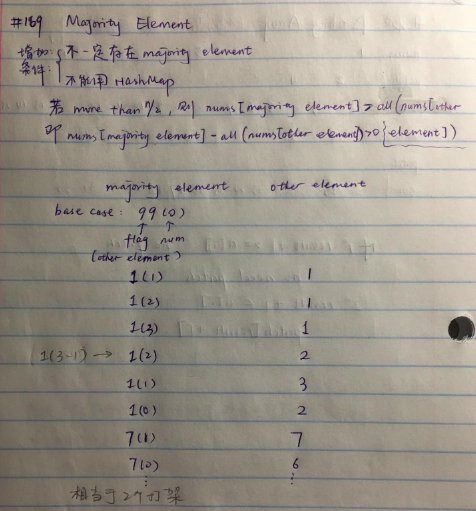 #169 Majority Element
增加条件: { 不一定存在 majority element
不能用 HashMap
若 more than n/2, 则 nums[majority element] > all(nums[other element])
即 nums[majority element] - all(nums[other element]) > 0
majority element other element
base case: 99(0)
↑ ↑
flag num
(other element)
1(1) 1
1(2) 1
1(3) 1
(1(3-1) → 1(2) 2
1(1) 3
1(0) 2
7(1) 7
7(0) 6
⋮ ⋮
相当于2个打架